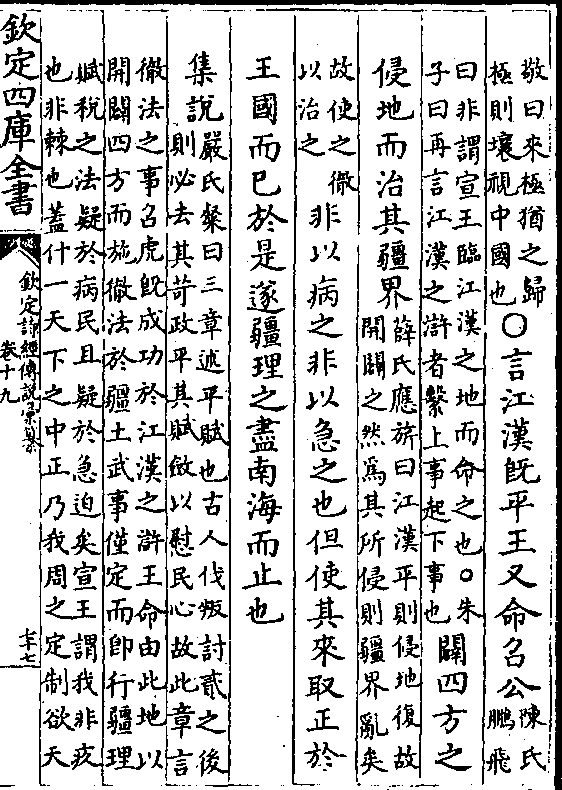 敬曰來極猶之歸
極則壤視中國也
○言江漢旣平王又命召公
陳氏
鵬飛
曰非謂宣王臨江漢之地而命之也○朱
子曰再言江漢之滸者繫上事起下事也
闢四方之
侵地而治其疆界
薛氏應旂曰江漢平則侵地復故
開闢之然為其所侵則疆界亂矣
故使之徹
以治之
非以病之非以急之也但使其來取正於
王國而已於是遂疆理之盡南海而止也
集說
嚴氏粲曰三章述平賦也古人伐叛討貳之後
則必去其苛政平其賦斂以慰民心故此章言
徹法之事召虎旣成功於江漢之滸王命由此地以
開闢四方而施徹法於疆土武事僅定而卽行疆理
賦稅之法疑於病民且疑於急迫矣宣王謂我非疚
也非棘也蓋什一天下之中正乃我周之定制欲天
欽定四庫全書
欽定詩經傳說彙纂
卷十九